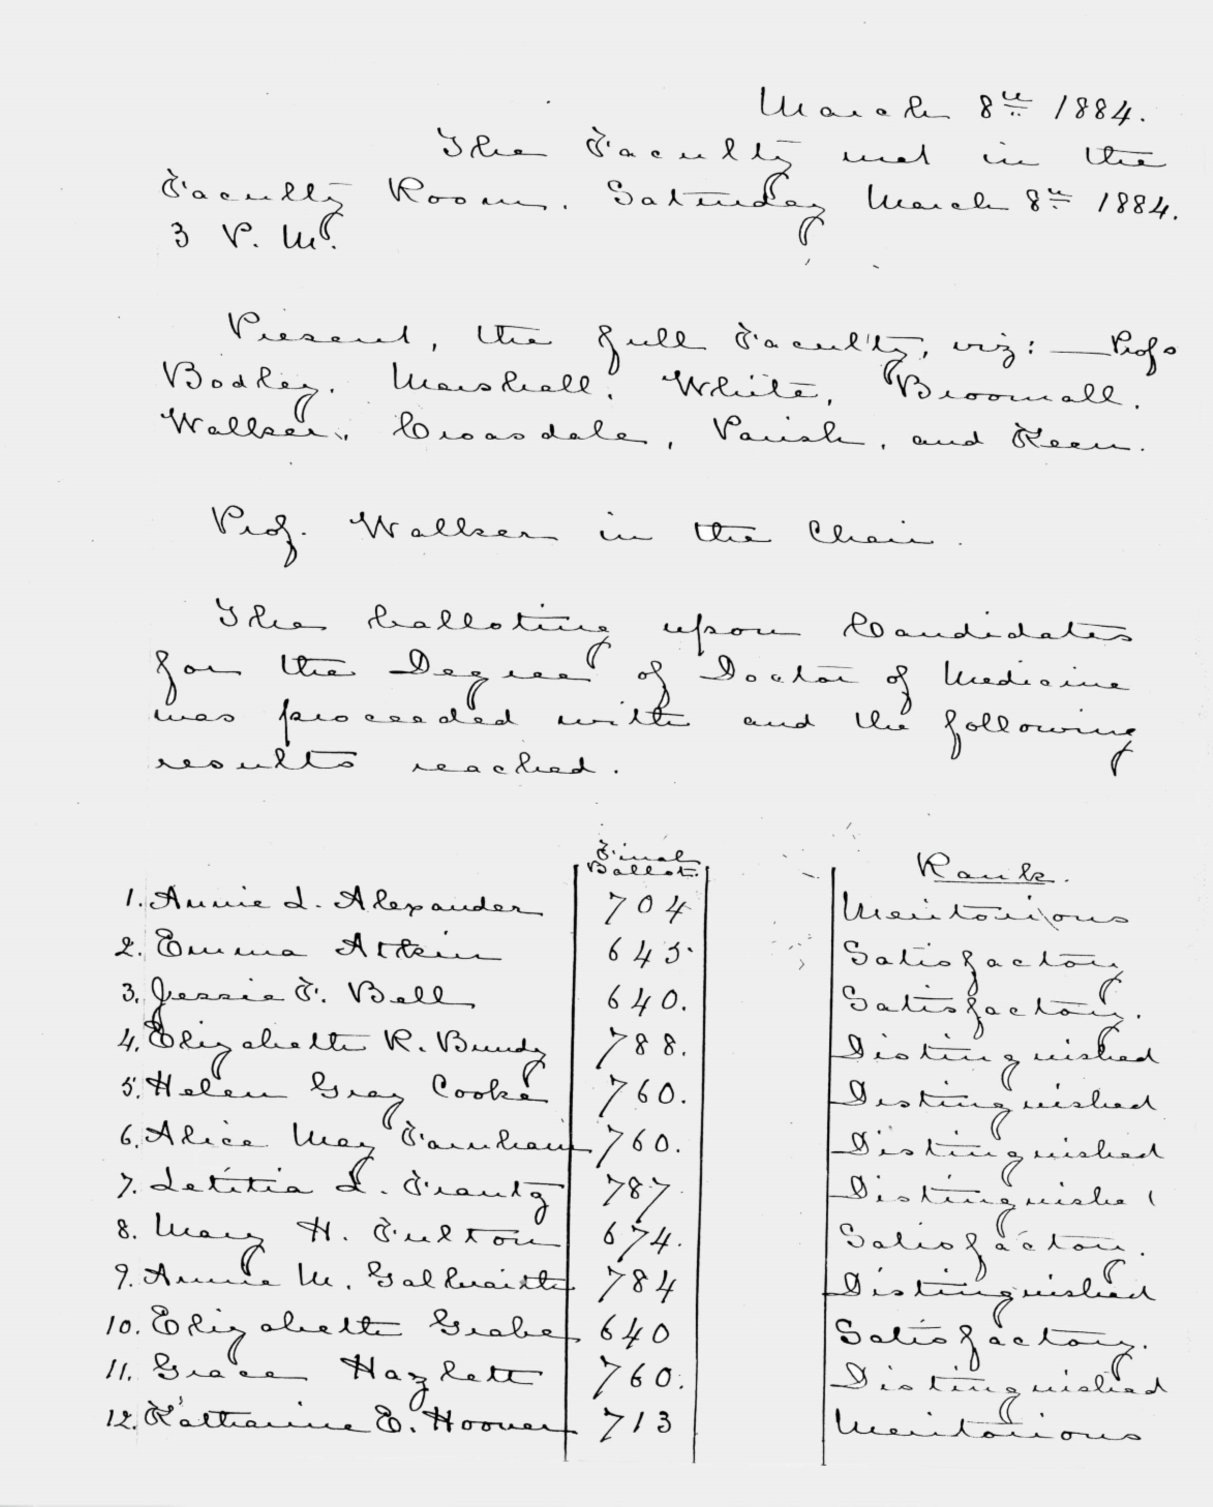 March 8th 1884.
The Faculty met in the
Faculty Room. Saturday March 8th 1884.
3 P. M.
Present, the full Faculty, viz: — Profs
Bodley. Marshall. White, Broomall.
Walker. Croasdale, Parish, and Keen.
Prof. Walker in the Chair.
The balloting upon Candidates
for the Degree of Doctor of Medicine
was proceeded with and the following
results reached.
Final Ballot. Rank.
1. Annie L. Alexander 704 Meritorious
2. Emma Atkin 645. Satisfactory
3. Jessie F. Bell 640. Satisfactory.
4. Elizabeth R. Bundy 788. Distinguished
5. Helen Gray Cooke 760. Distinguished
6. Alice May Farnham 760. Distinguished
7. Letitia L. Frantz 787. Distinguished
8. Mary H. Fulton 674. Satisfactory.
9. Annie M. Galbraith 784 Distinguished
10. Elizabeth Graber 640 Satisfactory.
11. Grace Hazlett 760. Distinguished
12. Katharine E. Hoover 713 Meritorious